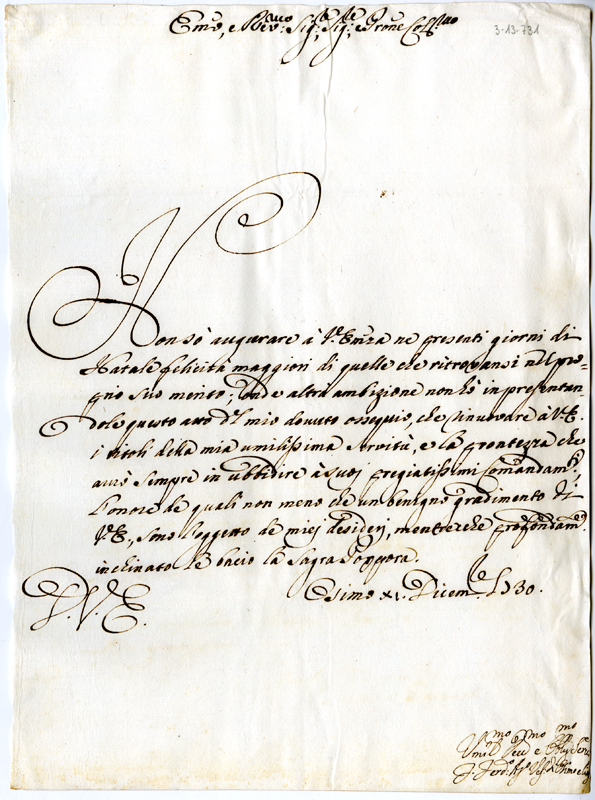 Emo, e Revmo: Sigr: Sigr: e Prone Colmo
3-13-731
Non sò augurare à V. Emza ne presenti giorni di
Natale felicità maggiori di quelle che ritrovansi nel pre=
gno suo merito; onde altra ambizione non hò in presentan=
dole questo atto del mio dovuto ossequio, che rinuovare à V.E.
i titoli della mia umilissima servitù, e la prontezza che
avrò sempre in ubbidire à suoj pregiatissimi Comandamti,
l'onore de quali non meno che un benigno gradimento di
V.E., sono l'oggetto de miej desiderj, mentre che profondamte
inchinato le bacio la Sagra Porpora.
Osimo XI. Dicembre 1730.
D. V. E.
Umilmo e Servre
F. Ferdo